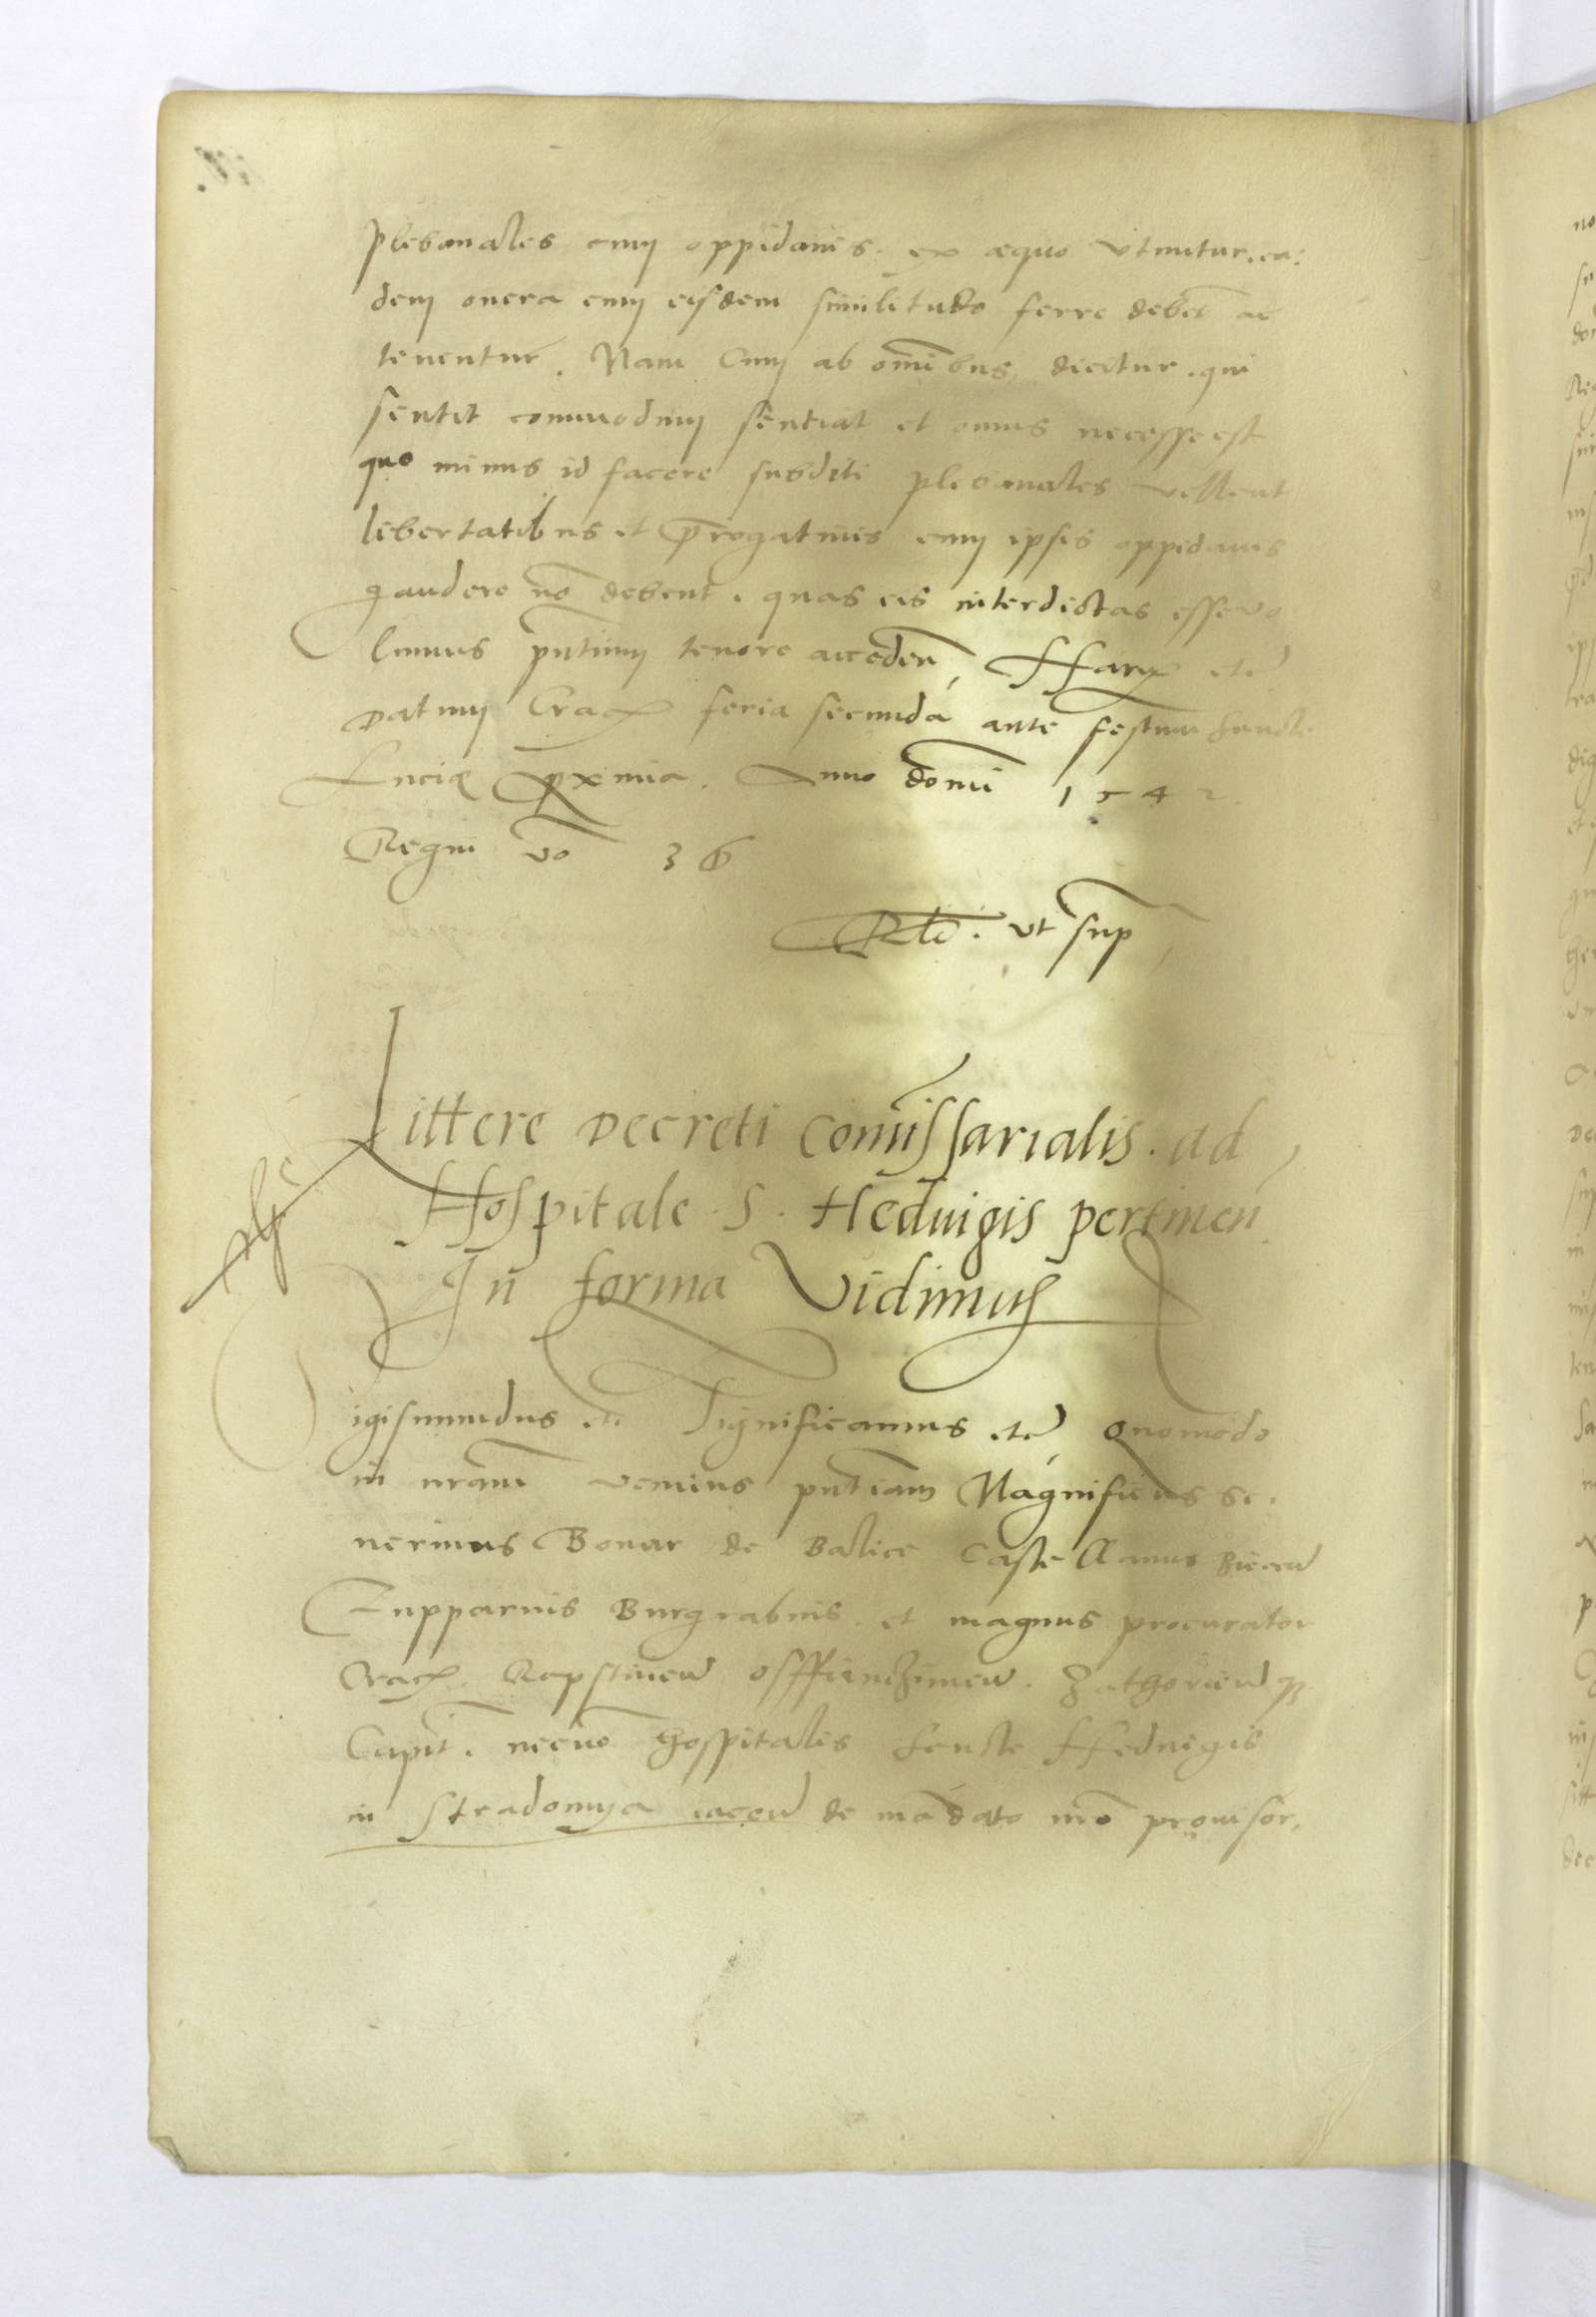 plebanales cum oppidanis ex æquo vtuntur. ea:
dem onera cum eisdem similitudo ferre debēt ac
tenentur. Nam Cum ab omībus dicitur. qui
sentit commodum sentiat et onus necesse est
quo minus id facere subditi plebanales vellent
libertatibus et prerogatiuis cum ipsis oppidanis
gaudere nō debent. quas eis interdictas esse vo
lumus pntium tenore acceden, Harum etc
Datum Crac feria secunda ante festum sancte
Luciæ proxima. Anno domī 1542.
Regni vō 36
Rlō. vt sup
Littere Decreti Comissarialis. ad
Hospitale S. Heduigis pertinen
In forma Vidimus
igismundus etc Significamus etc Quomodo
in nram veniens pntiam Magnificus Se:
uerinus Bonar de Balice Castellanus Biecen
Zupparius Burgrabius et magnus procurator
Crac. Rapstinen Osffienczimen. Zathorien qz
Capit. necno hospitalis Sancte Heduigis
in Stradomya iacen de mādato nrō prouisor,